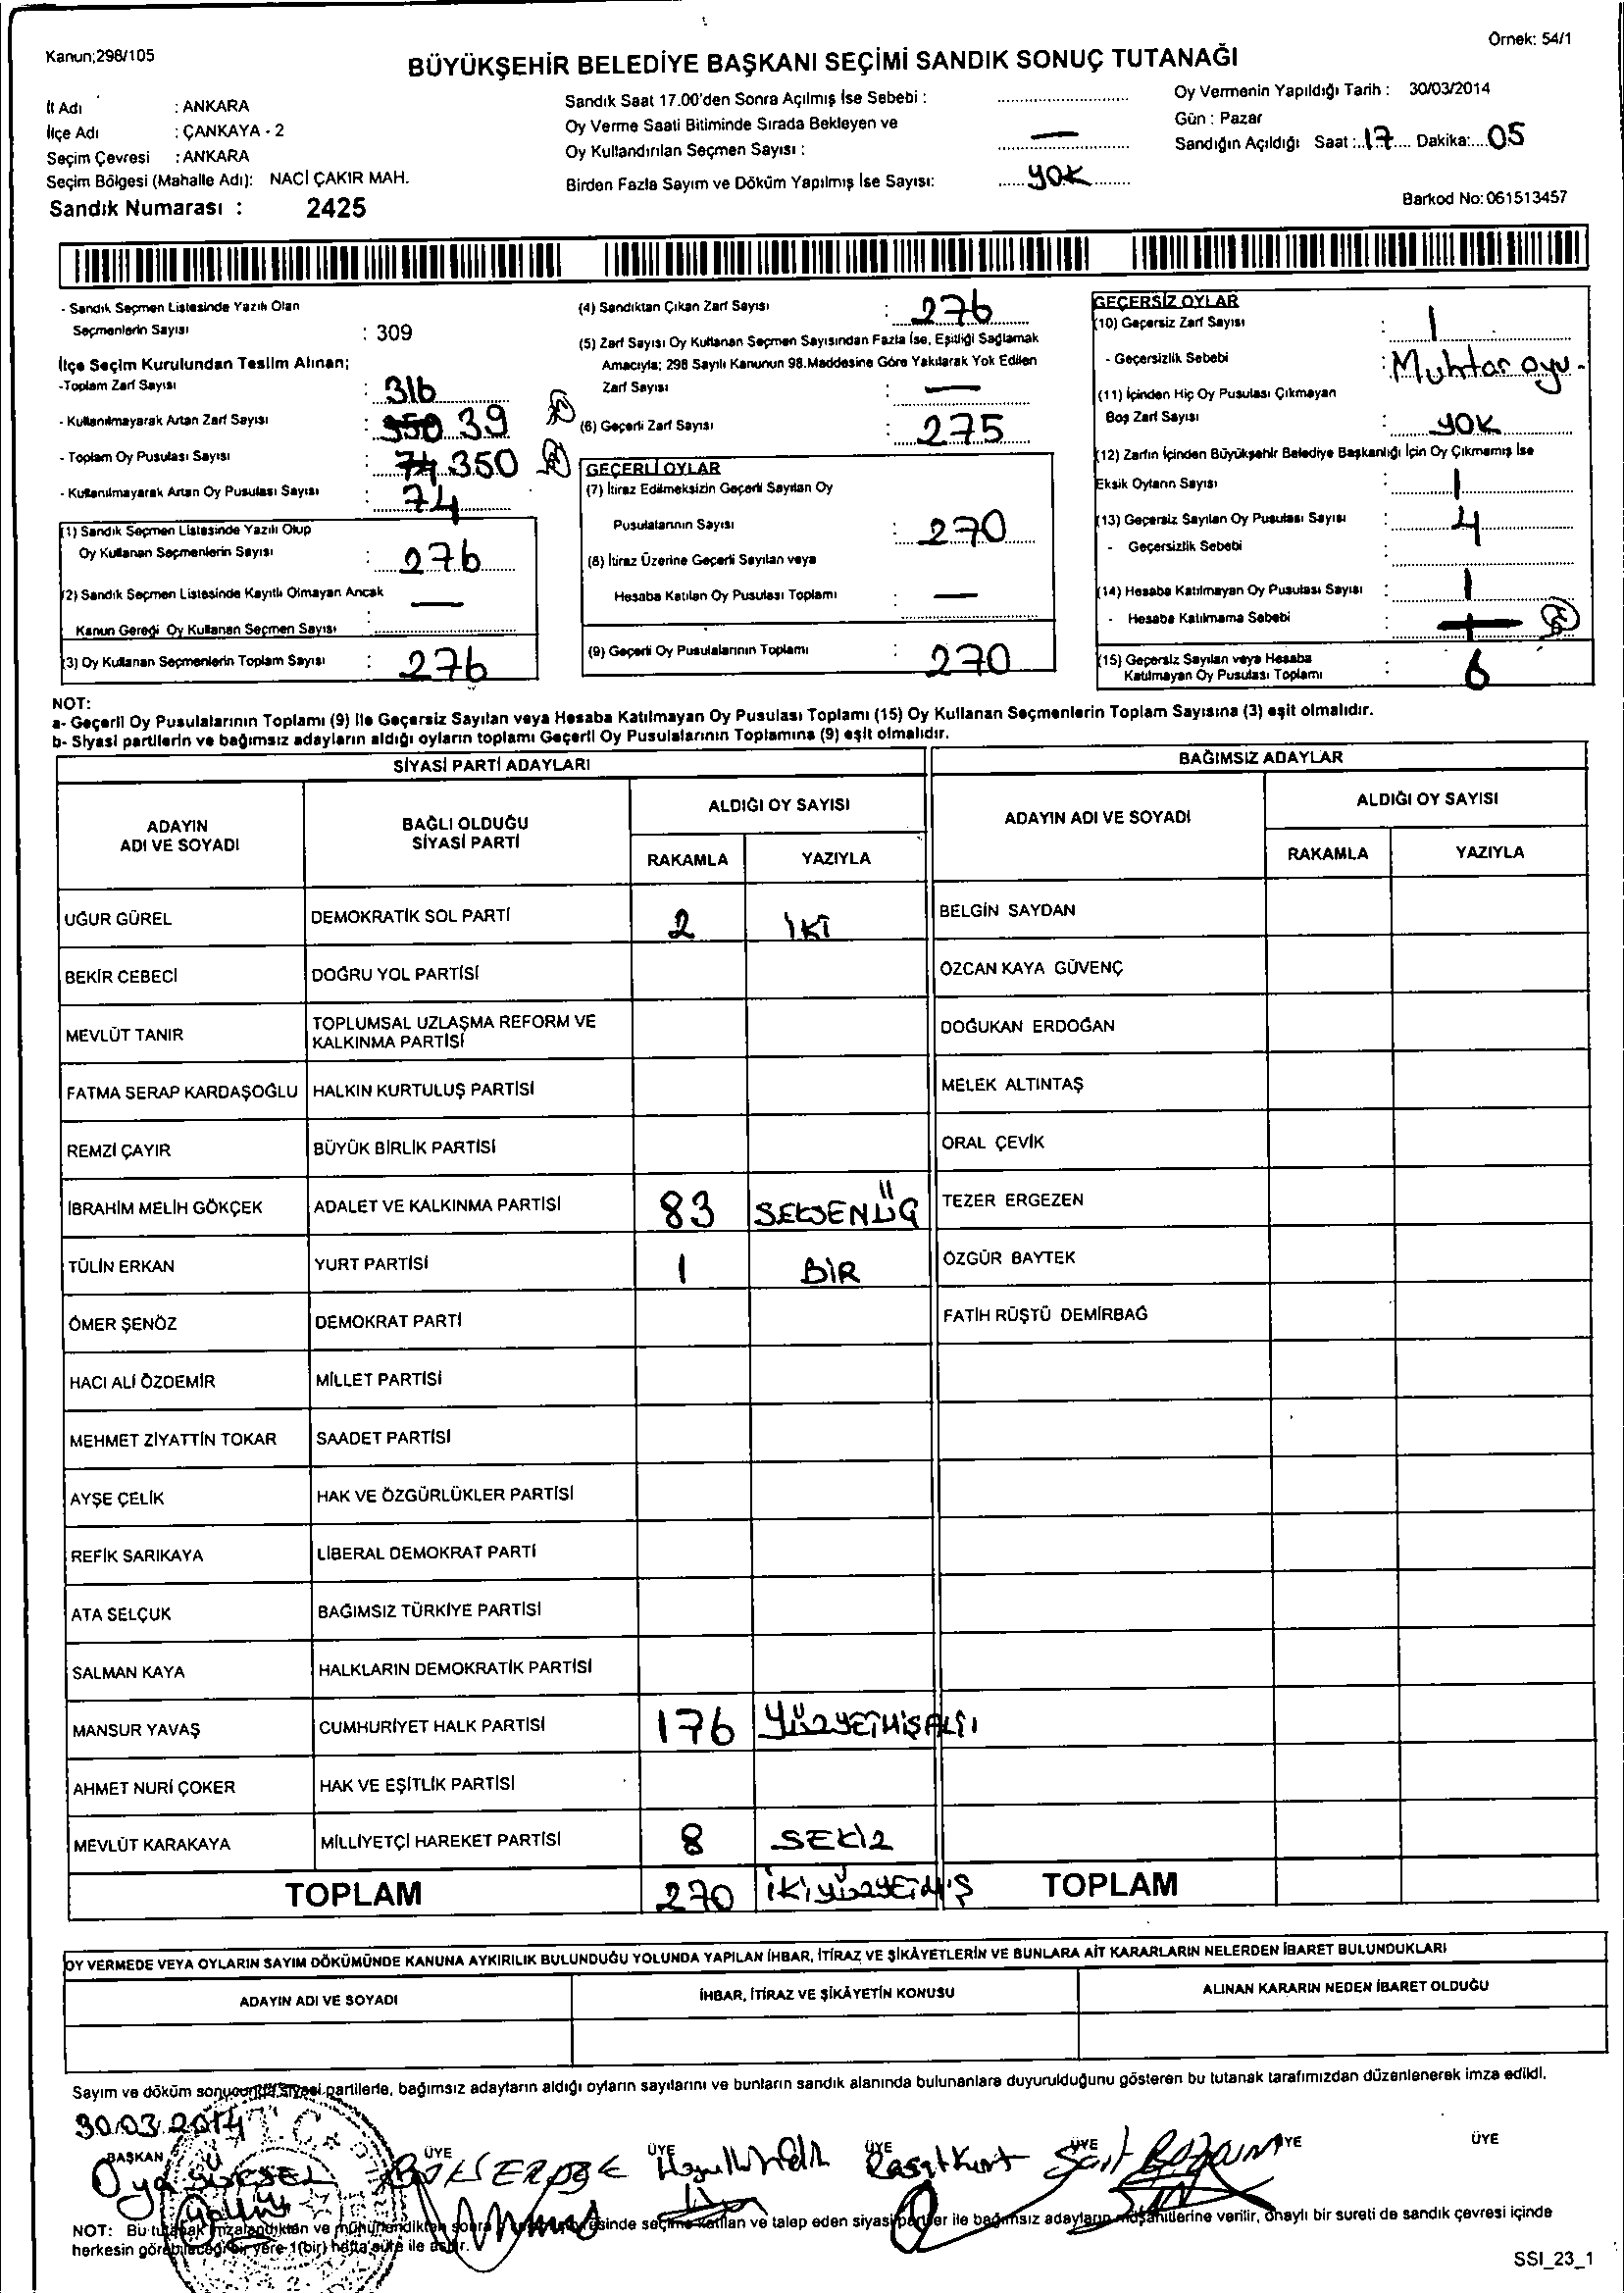 Kanun;298/105
Örnek: 54/1
BÜYÜKŞEHİR BELEDİYE BAŞKANI SEÇİMİ SANDIK SONUÇ TUTANAĞI
İl Adı : ANKARA
İlçe Adı : ÇANKAYA - 2
Seçim Çevresi : ANKARA
Seçim Bölgesi (Mahalle Adı): NACİ ÇAKIR MAH.
Sandık Numarası : 2425
Sandık Saat 17.00'den Sonra Açılmış İse Sebebi :
Oy Verme Saati Bitiminde Sırada Bekleyen ve
Oy Kullandırılan Seçmen Sayısı : —
Birden Fazla Sayım ve Döküm Yapılmış İse Sayısı: YOK
Oy Vermenin Yapıldığı Tarih : 30/03/2014
Gün : Pazar
Sandığın Açıldığı Saat : 17 Dakika: 05
Barkod No: 061513457
- Sandık Seçmen Listesinde Yazılı Olan
Seçmenlerin Sayısı : 309
İlçe Seçim Kurulundan Teslim Alınan;
-Toplam Zarf Sayısı : 316
- Kullanılmayarak Artan Zarf Sayısı : 350 39
- Toplam Oy Pusulası Sayısı : 74 350
- Kullanılmayarak Artan Oy Pusulası Sayısı : 74
(1) Sandık Seçmen Listesinde Yazılı Olup
Oy Kullanan Seçmenlerin Sayısı : 276
(2) Sandık Seçmen Listesinde Kayıtlı Olmayan Ancak
Kanun Gereği Oy Kullanan Seçmen Sayısı : —
(3) Oy Kullanan Seçmenlerin Toplam Sayısı : 276
(4) Sandıktan Çıkan Zarf Sayısı : 276
(5) Zarf Sayısı Oy Kullanan Seçmen Sayısından Fazla İse, Eşitliği Sağlamak
Amacıyla; 298 Sayılı Kanunun 98.Maddesine Göre Yakılarak Yok Edilen
Zarf Sayısı : —
(6) Geçerli Zarf Sayısı : 275
GEÇERLİ OYLAR
(7) İtiraz Edilmeksizin Geçerli Sayılan Oy
Pusulalarının Sayısı : 270
(8) İtiraz Üzerine Geçerli Sayılan veya
Hesaba Katılan Oy Pusulası Toplamı : —
(9) Geçerli Oy Pusulalarının Toplamı : 270
GEÇERSİZ OYLAR
(10) Geçersiz Zarf Sayısı : 1
- Geçersizlik Sebebi : Muhtar oyu -
(11) İçinden Hiç Oy Pusulası Çıkmayan
Boş Zarf Sayısı : YOK
(12) Zarfın İçinden Büyükşehir Belediye Başkanlığı İçin Oy Çıkmamış İse
Eksik Oyların Sayısı : 1
(13) Geçersiz Sayılan Oy Pusulası Sayısı : 4
- Geçersizlik Sebebi :
(14) Hesaba Katılmayan Oy Pusulası Sayısı : 1
- Hesaba Katılmama Sebebi :
(15) Geçersiz Sayılan veya Hesaba
Katılmayan Oy Pusulası Toplamı : 6
NOT:
a- Geçerli Oy Pusulalarının Toplamı (9) ile Geçersiz Sayılan veya Hesaba Katılmayan Oy Pusulası Toplamı (15) Oy Kullanan Seçmenlerin Toplam Sayısına (3) eşit olmalıdır.
b- Siyasi partilerin ve bağımsız adayların aldığı oyların toplamı Geçerli Oy Pusulalarının Toplamına (9) eşit olmalıdır.
SİYASİ PARTİ ADAYLARI
BAĞIMSIZ ADAYLAR
ADAYIN
ADI VE SOYADI
BAĞLI OLDUĞU
SİYASİ PARTİ
ALDIĞI OY SAYISI
RAKAMLA YAZIYLA
ADAYIN ADI VE SOYADI
ALDIĞI OY SAYISI
RAKAMLA YAZIYLA
UĞUR GÜREL DEMOKRATİK SOL PARTİ 2 İKİ BELGİN SAYDAN
BEKİR CEBECİ DOĞRU YOL PARTİSİ ÖZCAN KAYA GÜVENÇ
MEVLÜT TANIR TOPLUMSAL UZLAŞMA REFORM VE
KALKINMA PARTİSİ DOĞUKAN ERDOĞAN
FATMA SERAP KARDAŞOĞLU HALKIN KURTULUŞ PARTİSİ MELEK ALTINTAŞ
REMZİ ÇAYIR BÜYÜK BİRLİK PARTİSİ ORAL ÇEVİK
İBRAHİM MELİH GÖKÇEK ADALET VE KALKINMA PARTİSİ 83 SEKSENÜÇ TEZER ERGEZEN
TÜLİN ERKAN YURT PARTİSİ 1 BİR ÖZGÜR BAYTEK
ÖMER ŞENÖZ DEMOKRAT PARTİ FATİH RÜŞTÜ DEMİRBAĞ
HACI ALİ ÖZDEMİR MİLLET PARTİSİ
MEHMET ZİYATTİN TOKAR SAADET PARTİSİ
AYŞE ÇELİK HAK VE ÖZGÜRLÜKLER PARTİSİ
REFİK SARIKAYA LİBERAL DEMOKRAT PARTİ
ATA SELÇUK BAĞIMSIZ TÜRKİYE PARTİSİ
SALMAN KAYA HALKLARIN DEMOKRATİK PARTİSİ
MANSUR YAVAŞ CUMHURİYET HALK PARTİSİ 176 YÜZYETMİŞALTI
AHMET NURİ ÇOKER HAK VE EŞİTLİK PARTİSİ
MEVLÜT KARAKAYA MİLLİYETÇİ HAREKET PARTİSİ 8 SEKİZ
TOPLAM 270 İKİYÜZYETMİŞ TOPLAM
OY VERMEDE VEYA OYLARIN SAYIM DÖKÜMÜNDE KANUNA AYKIRILIK BULUNDUĞU YOLUNDA YAPILAN İHBAR, İTİRAZ VE ŞİKÂYETLERİN VE BUNLARA AİT KARARLARIN NELERDEN İBARET BULUNDUKLARI
ADAYIN ADI VE SOYADI İHBAR, İTİRAZ VE ŞİKÂYETİN KONUSU ALINAN KARARIN NEDEN İBARET OLDUĞU
Sayım ve döküm sonucunda siyasi partilerle, bağımsız adayların aldığı oyların sayılarını ve bunların sandık alanında bulunanlara duyurulduğunu gösteren bu tutanak tarafımızdan düzenlenerek imza edildi.
30.03.2014
BAŞKAN ÜYE ÜYE ÜYE ÜYE ÜYE ÜYE
Oya Raşit Kurt Sait
NOT: Bu tutanak imzalandıktan ve mühürlendikten sonra seçime katılan ve talep eden siyasi partiler ile bağımsız adayların müşahitlerine verilir, onaylı bir sureti de sandık çevresi içinde
herkesin görebileceği bir yere 1(bir) hafta süre ile asılır.
SSI_23_1